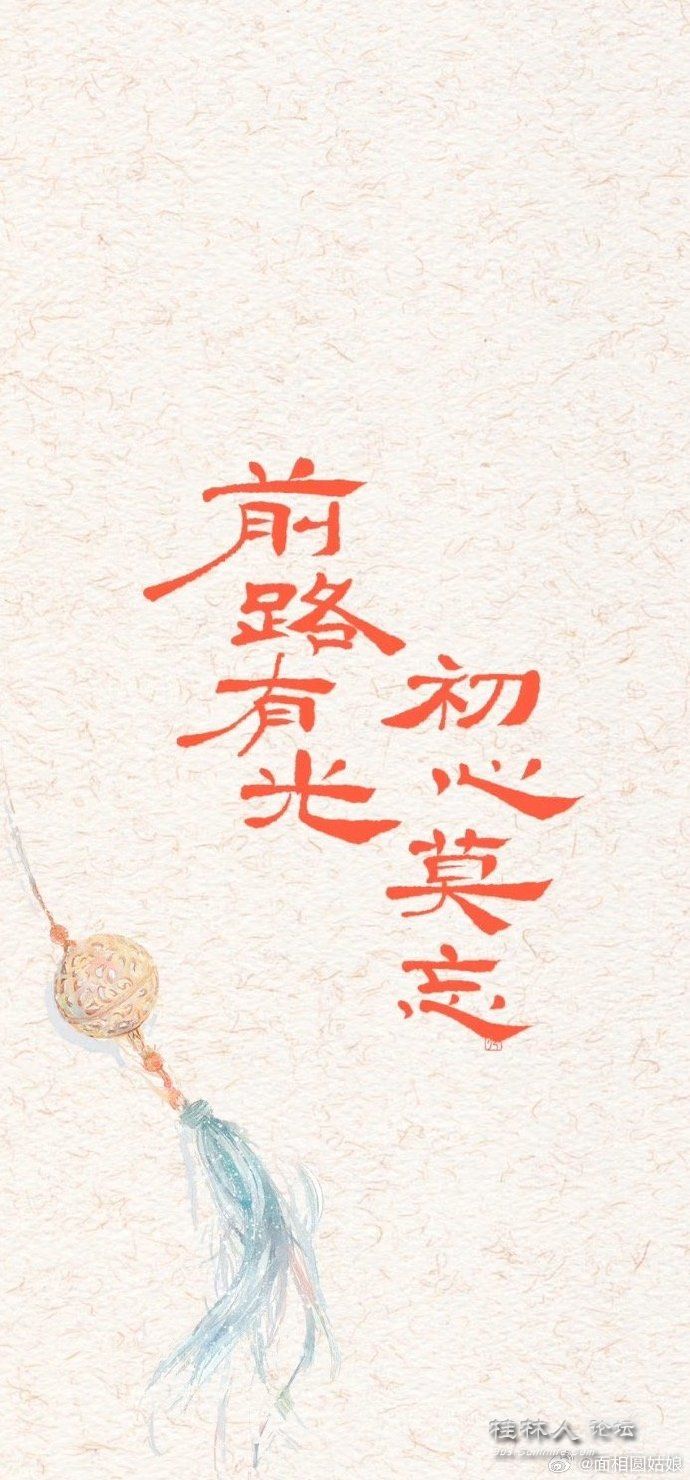 前路有光
初心莫忘
桂林人论坛
@面相圆姑娘